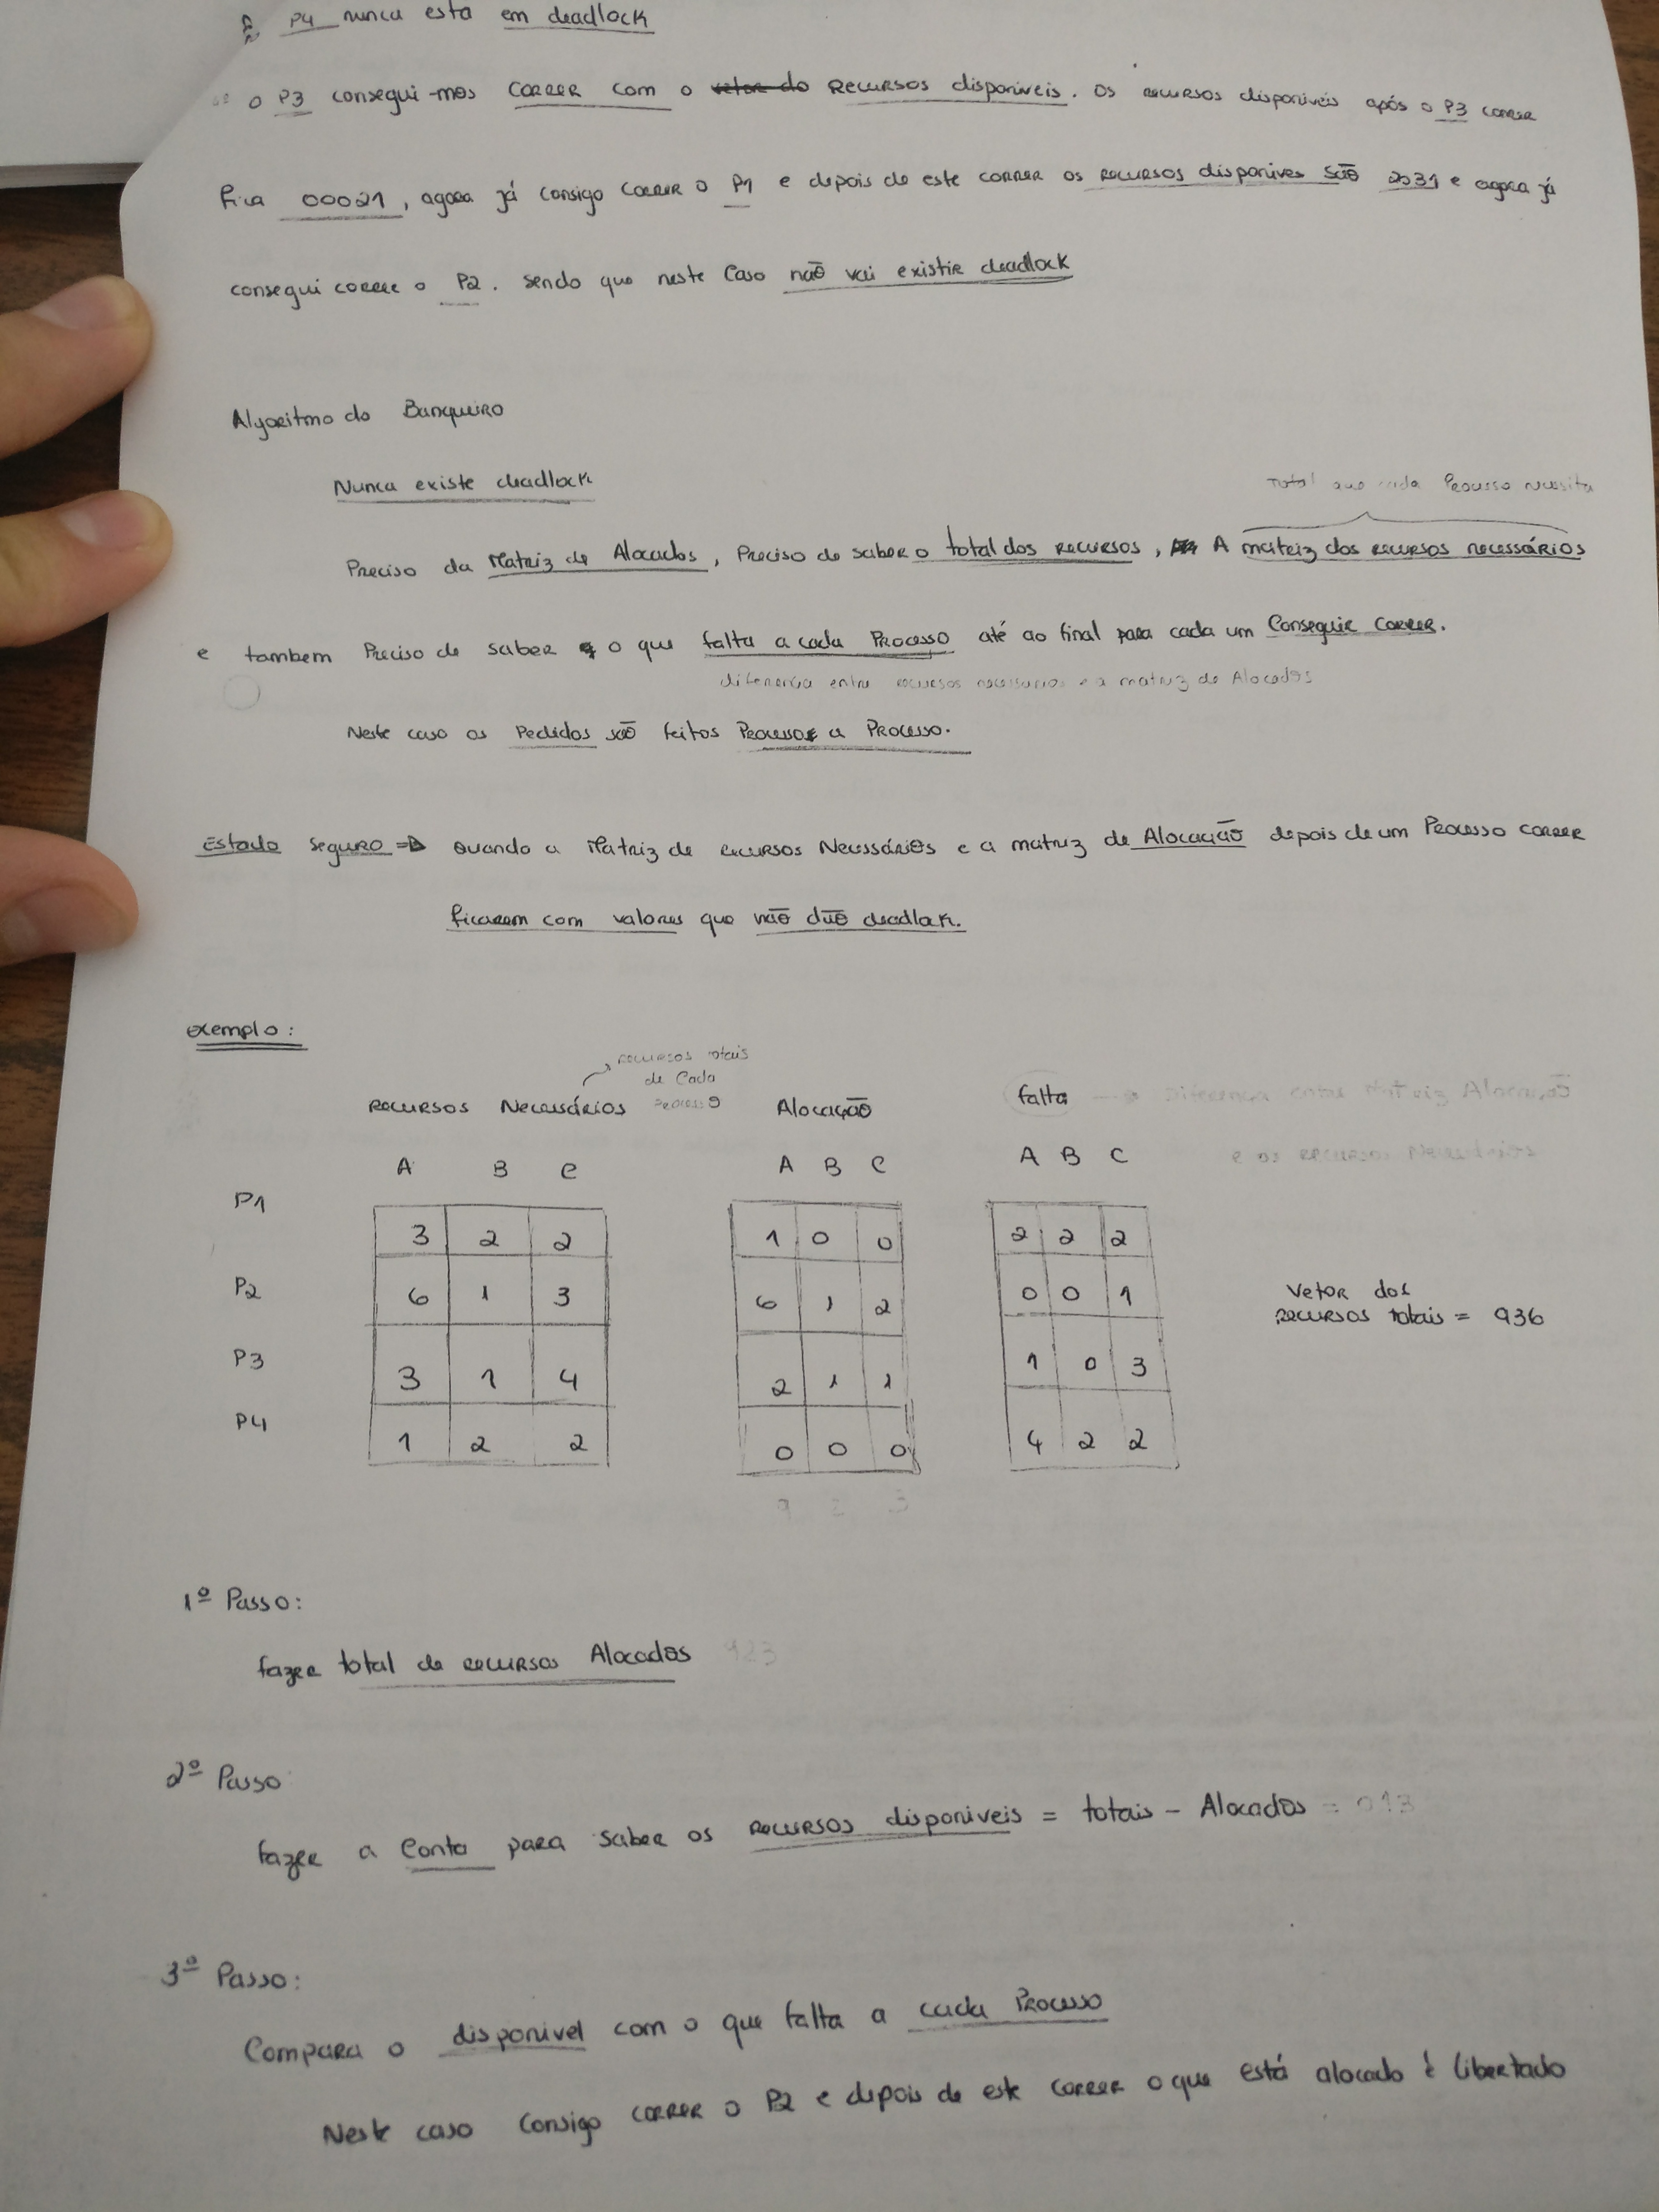 P4 nunca esta em deadlock
o P3 consegui-mos correr com o vetor do recursos disponiveis. Os recursos disponiveis após o P3 correr
fica 00021, agora já consigo correr o P1 e depois de este correr os recursos disponives são 2031 e agora já
consegui correr o P2. Sendo que neste caso não vai existir deadlock
Algoritmo do Banqueiro
Nunca existe deadlock
Total que cada Processo necessita
Preciso da Matriz de Alocados, Preciso de saber o total dos recursos, A matriz dos recursos necessários
e tambem Preciso de saber o que falta a cada Processo até ao final para cada um Conseguir correr.
diferença entre recursos necessarios e a matriz de Alocados
Neste caso os Pedidos são feitos Processo a Processo.
Estado Seguro => Quando a Matriz de recursos Necessários e a matriz de Alocação depois de um Processo correr
ficarem com valores que não dão deadlok.
exemplo:
recursos totais
de Cada
Processo
Recursos Necessários Alocação falta → Diferença entre Matriz Alocação
e os recursos Necessários
A B C A B C A B C
P1 3 2 2 1 0 0 2 2 2
P2 6 1 3 6 1 2 0 0 1
Vetor dos
recursos totais = 936
P3 3 1 4 2 1 1 1 0 3
P4 1 2 2 0 0 0 4 2 2
9 2 3
1º Passo:
fazer total de recursos Alocados 923
2º Passo
fazer a Conta para saber os recursos disponiveis = totais - Alocados = 013
3º Passo:
Compara o disponivel com o que falta a cada Processo
Neste caso Consigo correr o P2 e depois de este correr o que está alocado é libertado